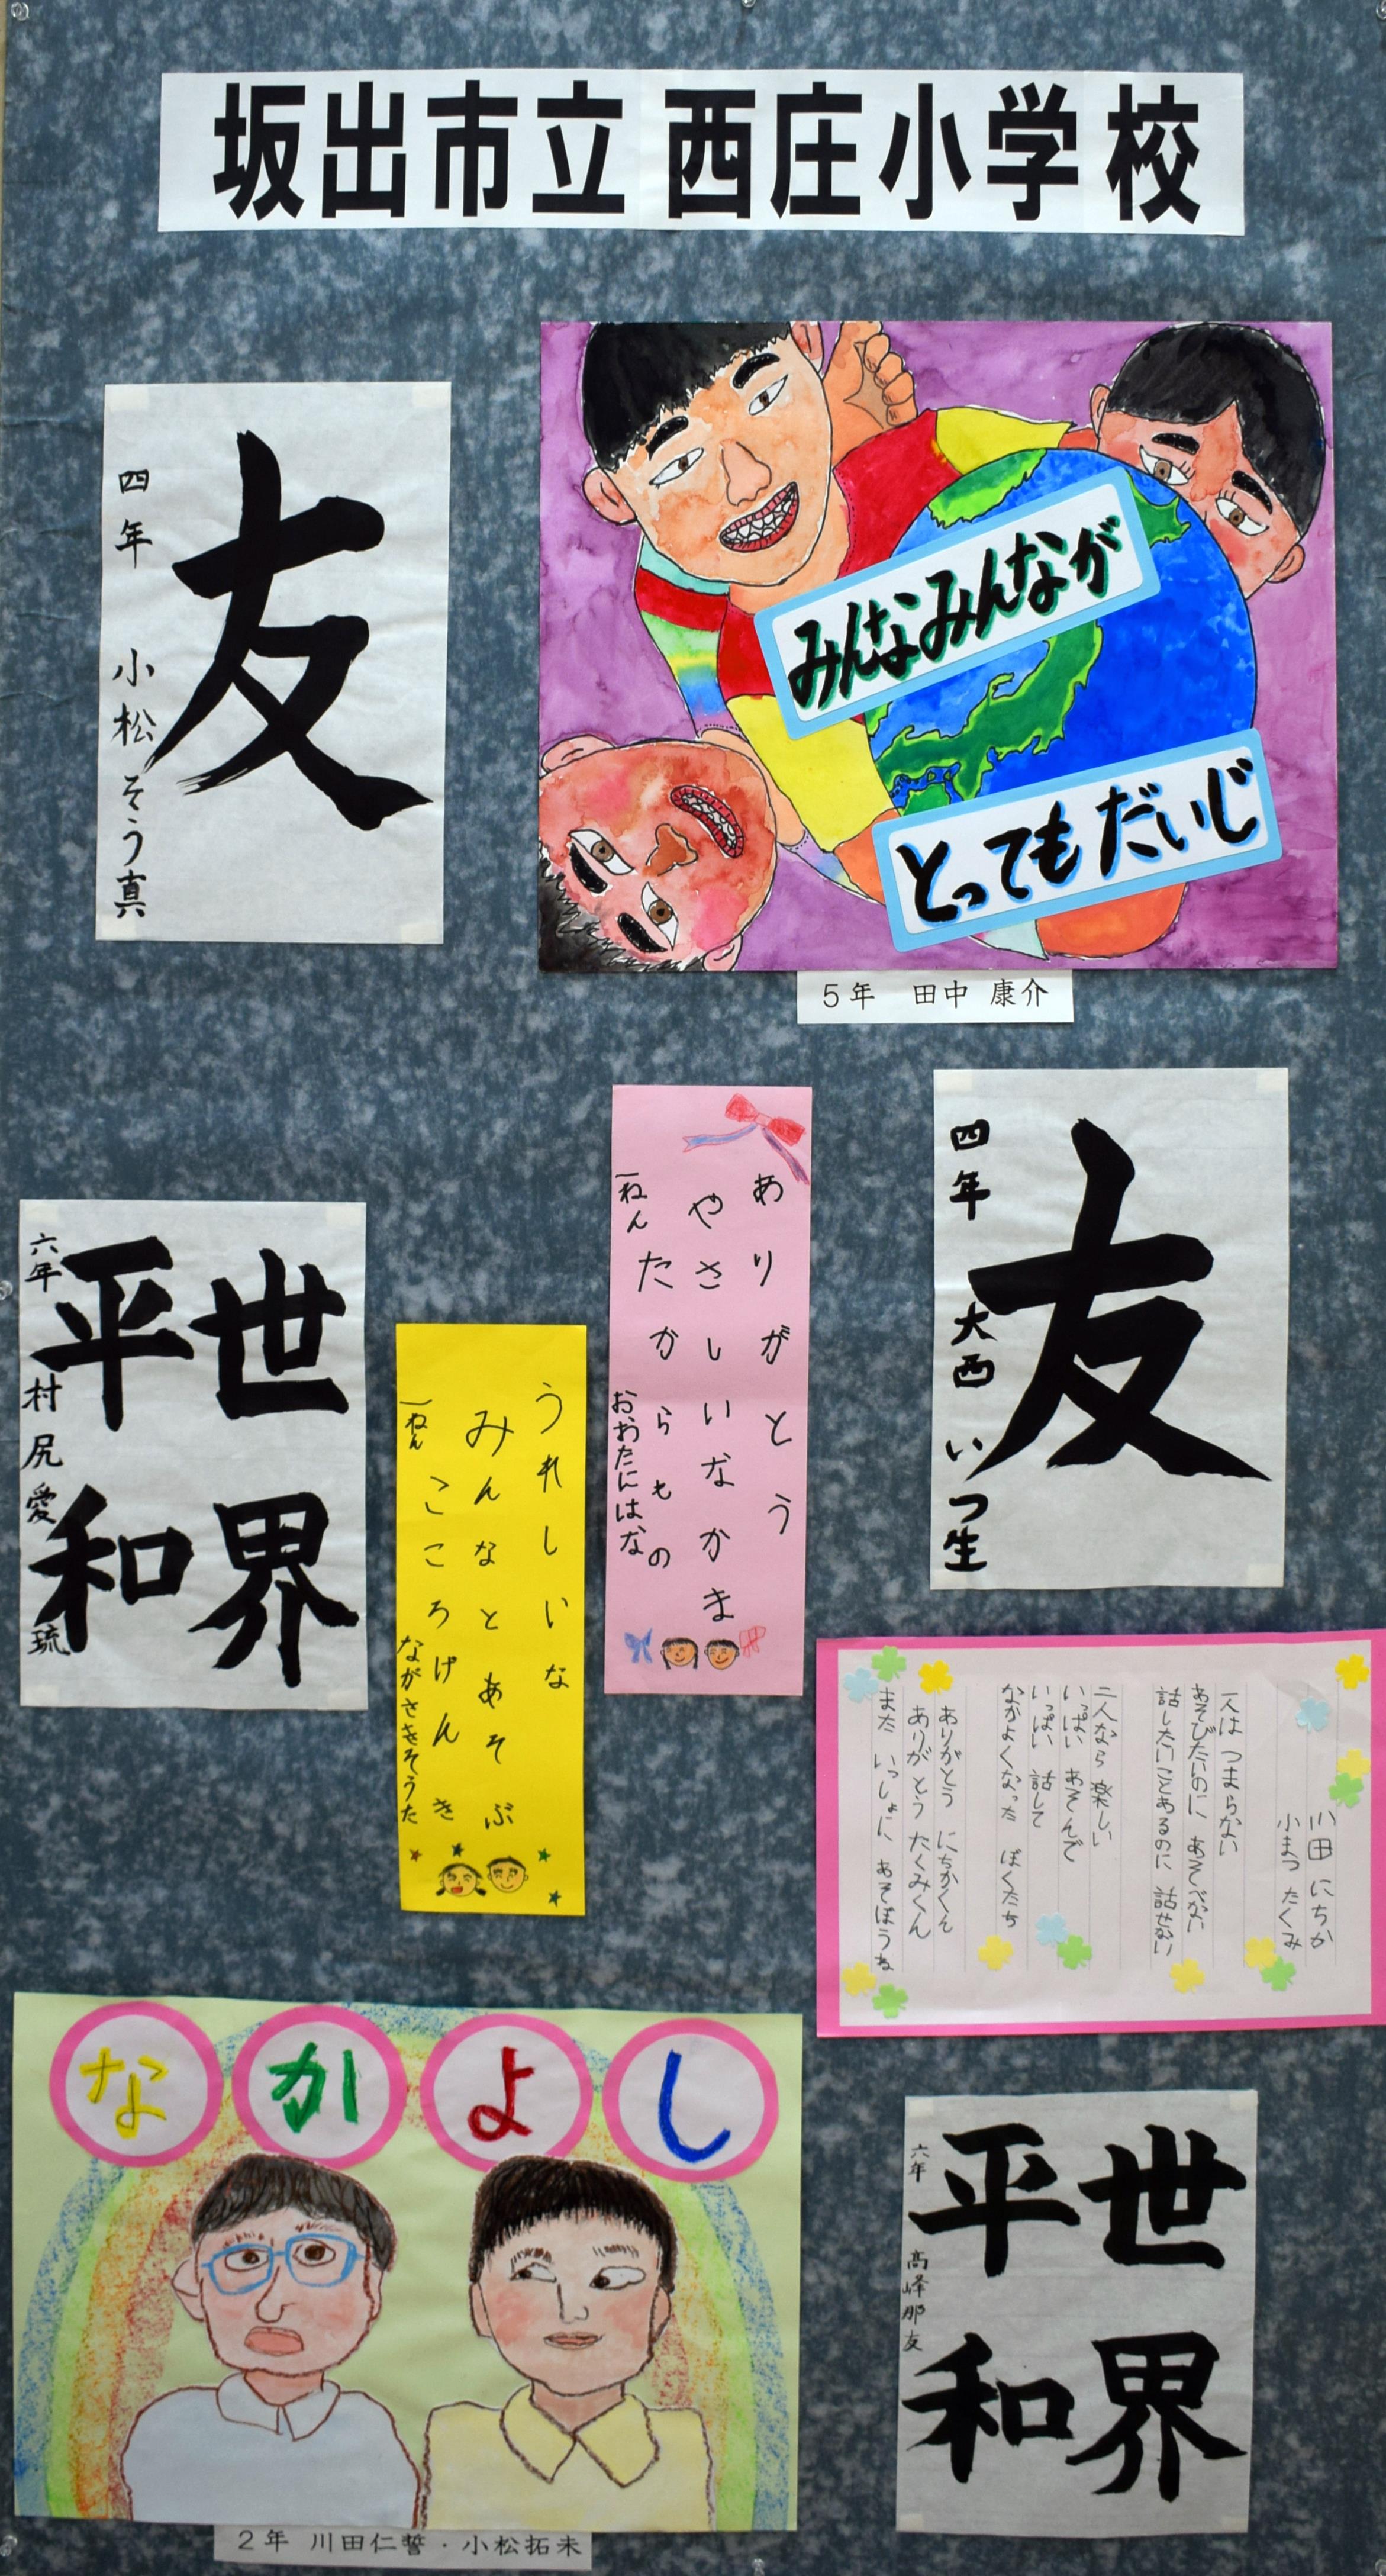 坂出市立 西庄小学校
友
四年 小松そう真
みんなみんなが
とってもだいじ
5年 田中 康介
友
四年 大西いつ生
ありがとう
やさしいなかま
たからもの
一ねん おおたにはな
世界
平和
六年 村尻愛琉
うれしいな
みんなとあそぶ
こころげんき
一ねん ながさきそうた
川田 にちか
小まつ たくみ
一人は つまらない
あそびたいのに あそべない
話したいことあるのに 話せない
二人なら 楽しい
いっぱい あそんで
いっぱい 話して
なかよくなった ぼくたち
ありがとう にちかくん
ありがとう たくみくん
また いっしょに あそぼうね
なかよし
2年 川田仁誓・小松拓未
世界
平和
六年 高峰那友